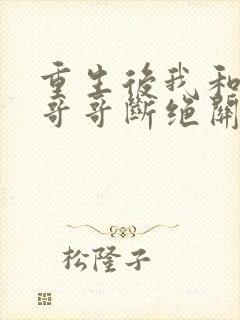 重生後我和
哥哥斷绝關
松隆子